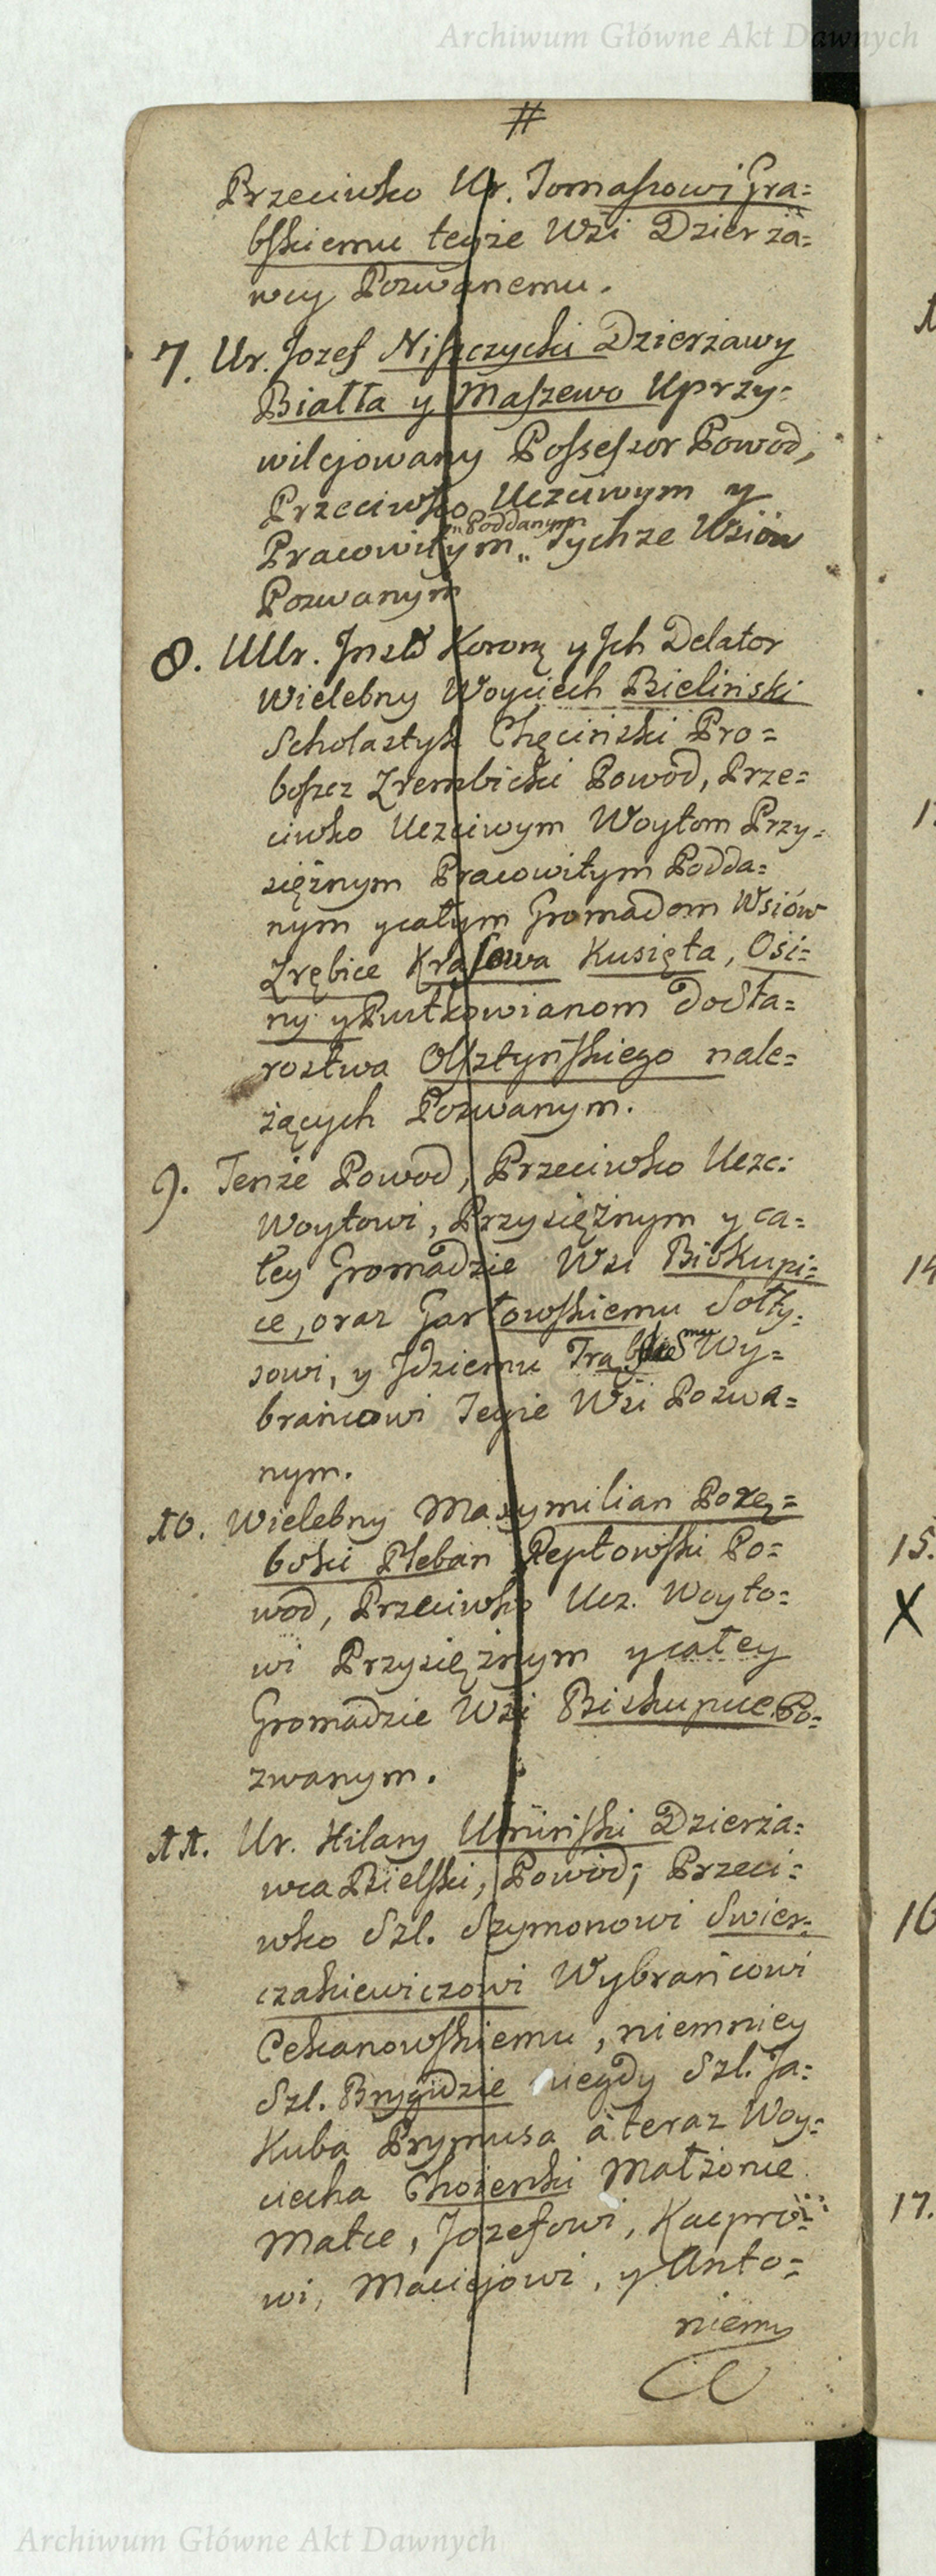 Archiwum Główne Akt Dawnych
#
Przeciwko Ur. Tomaszowi Gra=
bskiemu teyże Wsi Dzierża=
wcy Pozwanemu.
7. Ur. Jozef Niszczycki Dzierżawy
Białła y Maszewo Uprzy=
wilejowany Possessor Powod,
Przeciwko Uczciwym y
Pracowitym „Poddanym„ Tychże Wsiow
Pozwanym
8. UUr. Korony y Jch Delator
Wielebny Woyciech Bieliński
Scholastyk Chęciński Pro=
boszcz Zrembicki Powod, Prze=
ciwko Uczciwym Woytom Przy=
siężnym Pracowitym Podda=
nym y całym Gromadom Wsiów
Zrębice Krasowa Kusięta, Osi=
ny y Kowianom do Sta=
rostwa Olsztyńskiego nale=
żących Pozwanym.
9. Tenże Powod, Przeciwko Uczc:
Woytowi, Przysiężnym y ca=
łey Gromadzie Wsi Biskupi=
ce, oraz Garłowskiemu Sołty=
sowi, y Jdziemu Wy=
brańcowi Teyże Wsi Pozwa=
nym.
10. Wielebny Maxymilian Porę=
bski Pleban Reptowski Po=
wod, Przeciwko Ucz. Woyto=
wi Przysiężnym y całey
Gromadzie Wsi Biskupice Po=
zwanym.
11. Ur. Hilary Umiński Dzierża=
wca Bielski, Powod; Przeci=
wko Szl. Szymonowi Swier=
czakiewiczowi Wybrańcowi
Cekanowskiemu, niemniey
Szl. Brygidzie niegdy Szl. Ja=
kuba Prymusa a teraz Woy=
ciecha Choienski Małżonce
Matce, Jozefowi, Kacpro=
wi, Maciejowi, y Anto=
niemu
14
15.
X
16
17.
Archiwum Główne Akt Dawnych